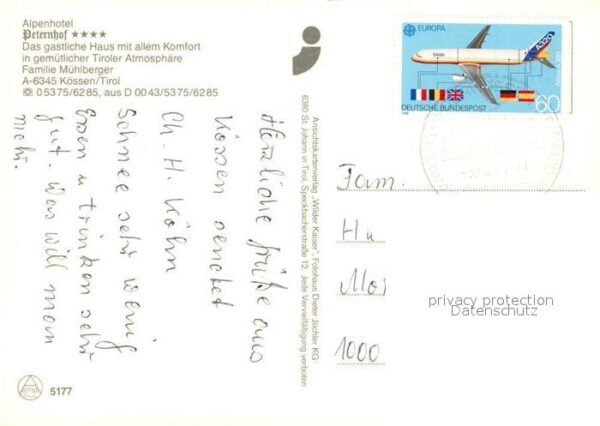 Alpenhotel
Peternhof ★★★★
Das gastliche Haus mit allem Komfort
in gemütlicher Tiroler Atmosphäre
Familie Mühlberger
A-6345 Kössen/Tirol
05375/6285, aus D 0043/5375/6285
Herzliche Grüße aus
Kössen sendet
Ch. H. Köhn
Schnee sehr wenig
Essen u trinken sehr
gut. Was will man
mehr.
5177
Ansichtskartenverlag „Wilder Kaiser", Fotohaus Dieter Jöchler KG
6380 St. Johann in Tirol, Speckbacherstraße 12. Jede Vervielfältigung verboten
EUROPA
A320
DEUTSCHE BUNDESPOST
60
Fam.
Hu
Mos
1000
privacy protection
Datenschutz